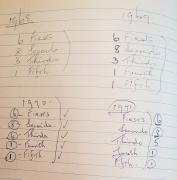 1968
6 Firsts
8 Seconds
3 Thirds
1 Fifth
1969
6 Firsts
8 Seconds
3 Thirds
1 Fourth
1 Fifth
1990
6 Firsts
8 Seconds
6 Thirds
1 Fourth
1 Fifth
1991
Firsts 6
Seconds 8
Thirds 5
Fourth 1
Fifth 1